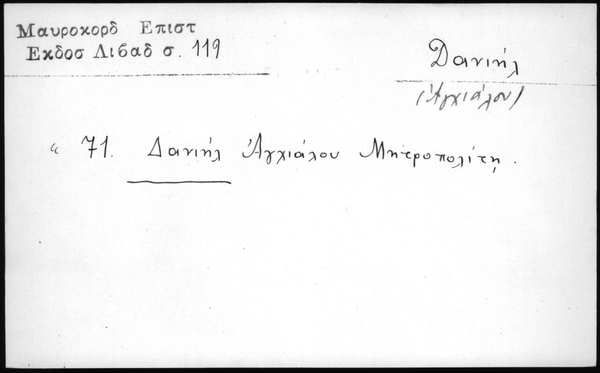 Μαυροκορδ Επιστ
Εκδοσ Λιβαδ σ. 119
Δανιήλ
(Ἀγχιάλου)
« 71. Δανιήλ Ἀγχιάλου Μητροπολίτῃ.